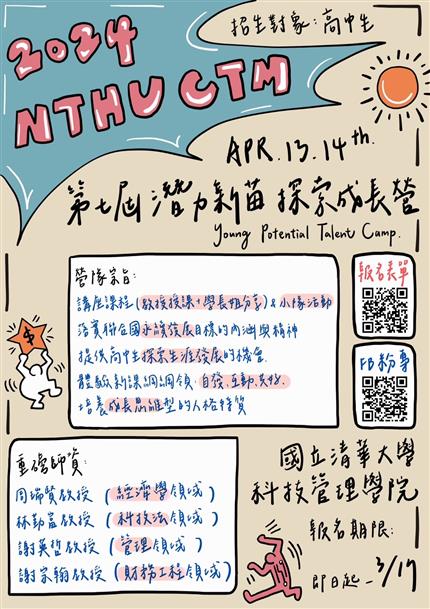 2024
NTHU CTM
招生對象：高中生
APR.13.14th.
第七屆潛力新苗探索成長營
Young Potential Talent Camp.
營隊宗旨：
講座課程（教授授課+學長姐分享）& 小隊活動
落實聯合國永續發展目標的內涵與精神
提供高中生探索生涯發展的機會.
體驗新課綱綱領：自發.互動.共好.
培養成長思維型的人格特質
報名表單
FB粉專
重磅師資：
周瑞賢教授（經濟學領域）
林勤富教授（科技法領域）
謝英哲教授（管理領域）
謝宗翰教授（財務工程領域）
國立清華大學
科技管理學院
報名期限：
即日起_3/17